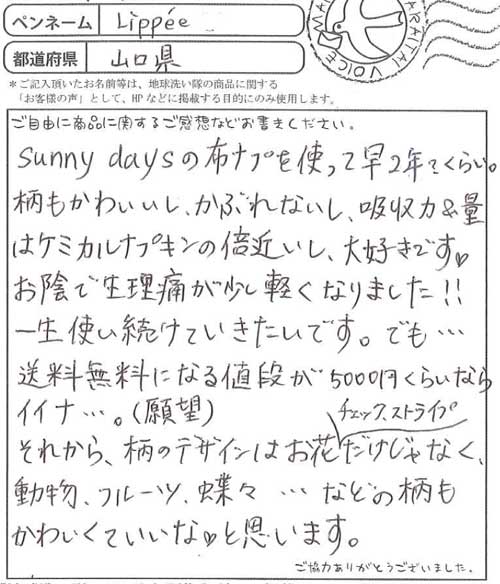 ペンネーム Lippée
都道府県 山口県
ARAITAI VOICE
*ご記入頂いたお名前等は、地球洗い隊の商品に関する
「お客様の声」として、HPなどに掲載する目的にのみ使用します。
ご自由に商品に関するご感想などお書きください。
sunny daysの布ナプを使って早2年くらい。
柄もかわいいし、かぶれないし、吸収力&量
はケミカルナプキンの倍近いし、大好きです♥
お陰で生理痛が少し軽くなりました!!
一生使い続けていきたいです。でも…
送料無料になる値段が5000円くらいなら
イイナ…。(願望)
チェック、ストライプ
それから、柄のデザインはお花だけじゃなく、
動物、フルーツ、蝶々 … などの柄も
かわいくていいな♥と思います。
ご協力ありがとうございました。